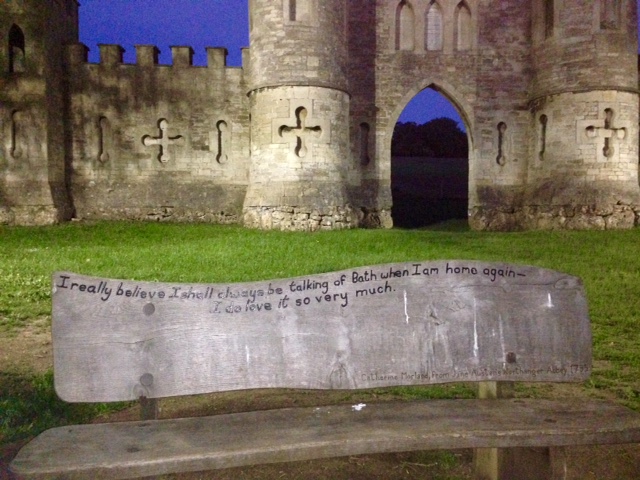 I really believe I shall always be talking of Bath when I am home again—
I do love it so very much.
Catherine Morland, from Jane Austen's Northanger Abbey, 1795